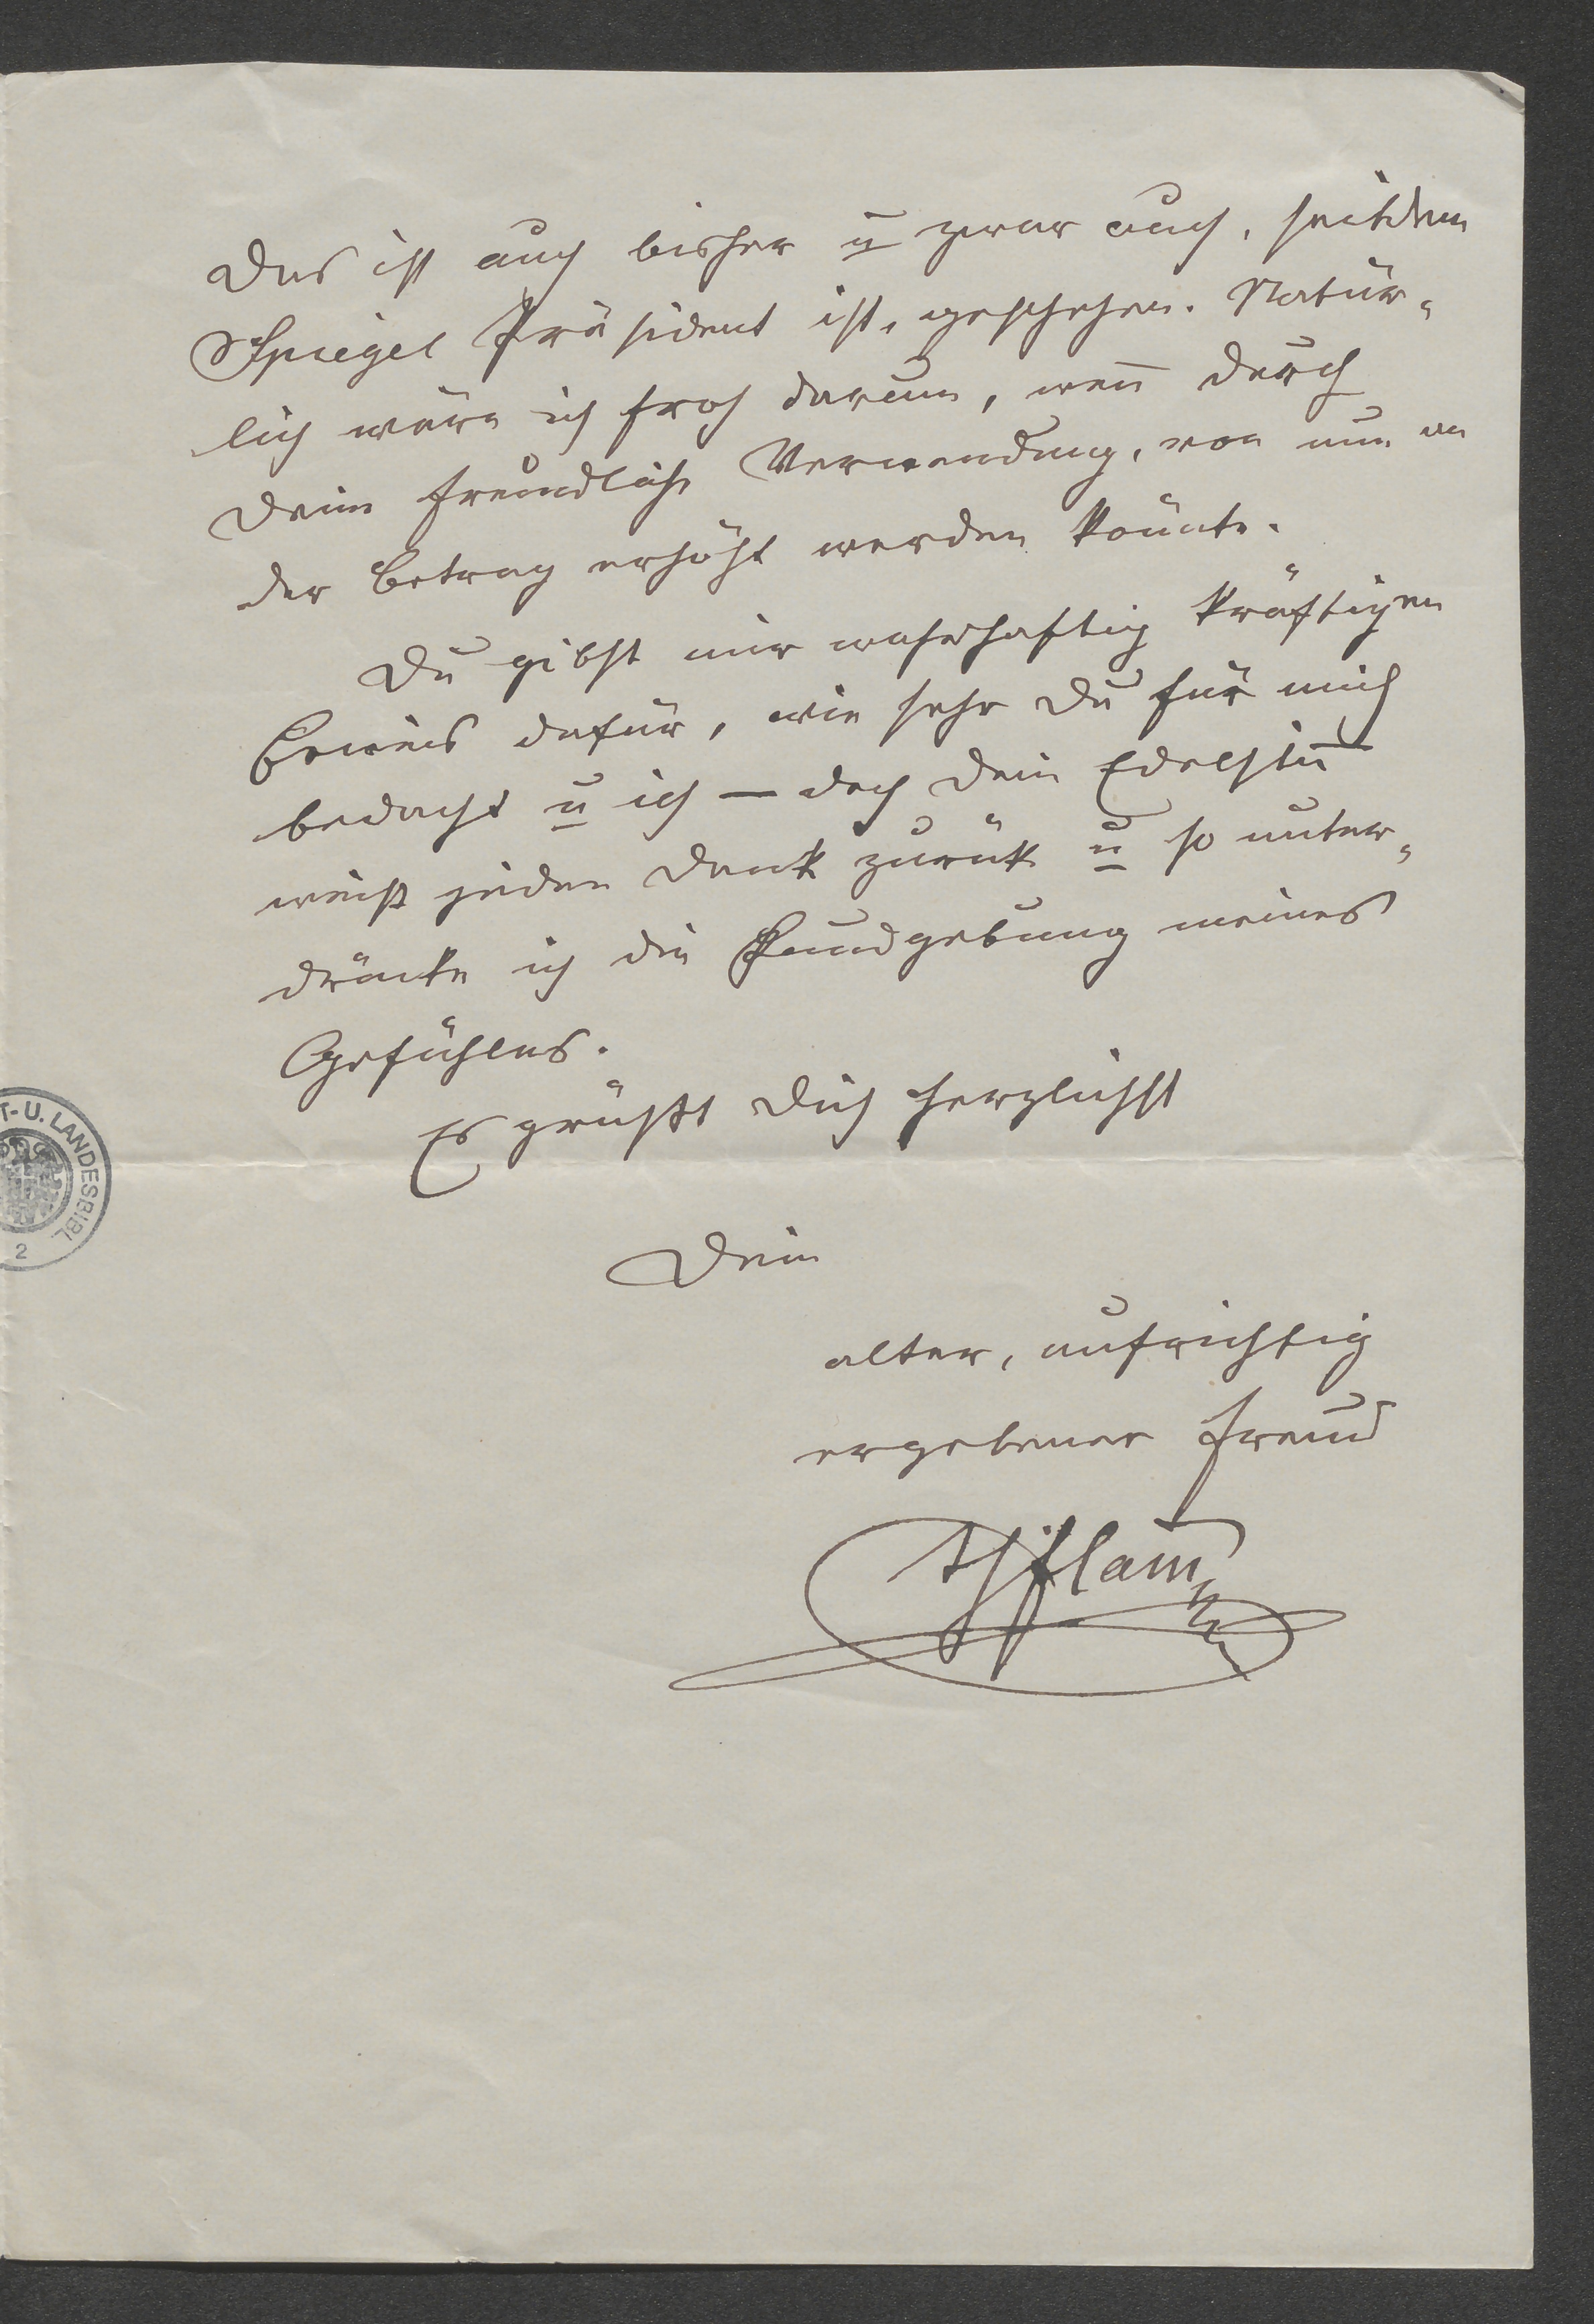 Das ist auch bisher u zwar auch, seitdem
Spiegel Präsident ist, geschehen. Natür-
lich wäre ich froh darum, wen̄ durch
Deine freundliche Verwendung, von nun an
der Betrag erhöht werden könnte.
Du gibst mir wahrhaftig kräftigen
Beweis dafür, wie sehr Du für mich
bedacht u ich — doch Dein Edelsin̄
weist jeden Dank zurük u so unter-
drücke ich die Kundgebung meines
Gefühles.
Es grüßt Dich herzlichst
Dein
alter, aufrichtig
ergebener Freund
T- U. LANDESBIBL.
2